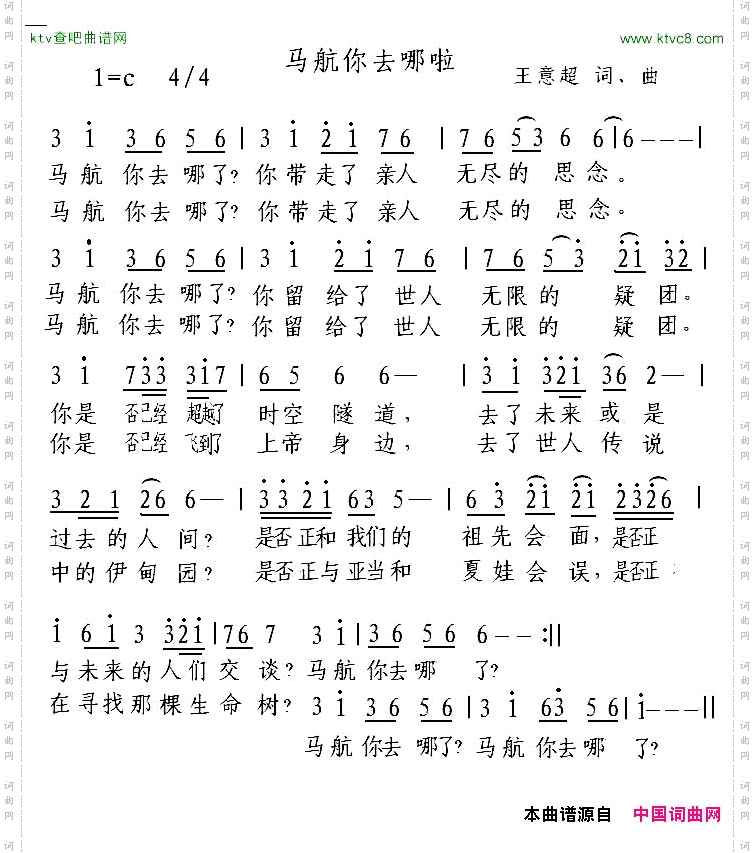 ktv查吧曲谱网
www.ktvc8.com
马航你去哪啦
1=c 4/4
王意超 词、曲
3 i 3 6 5 6 | 3 i 2 i 7 6 | 7 6 5 3 6 6 | 6 - - - |
马航你去哪了?你带走了亲人 无尽的思念。
马航你去哪了?你带走了亲人 无尽的思念。
3 i 3 6 5 6 | 3 i 2 i 7 6 | 7 6 5 3 2 i 3 2 |
马航你去哪了?你留给了世人 无限的疑团。
马航你去哪了?你留给了世人 无限的疑团。
3 i 7 3 3 3 i 7 | 6 5 6 6 — | 3 i 3 2 i 3 6 2 — |
你是否已经超越了时空隧道,去了未来或是
你是否已经飞到了上帝身边,去了世人传说
3 2 1 2 6 6 — | 3 3 2 i 6 3 5 — | 6 3 2 i 2 i 2 3 2 6 |
过去的人间?是否正和我们的祖先会面,是否正
中的伊甸园?是否正与亚当和夏娃会误,是否正
i 6 i 3 3 2 i | 7 6 7 3 i | 3 6 5 6 6 - - :||
与未来的人们交谈?马航你去哪了?
在寻找那棵生命树?
3 i 3 6 5 6 | 3 i 6 3 5 6 | i - - - ||
马航你去哪了?马航你去哪了?
本曲谱源自 中国词曲网